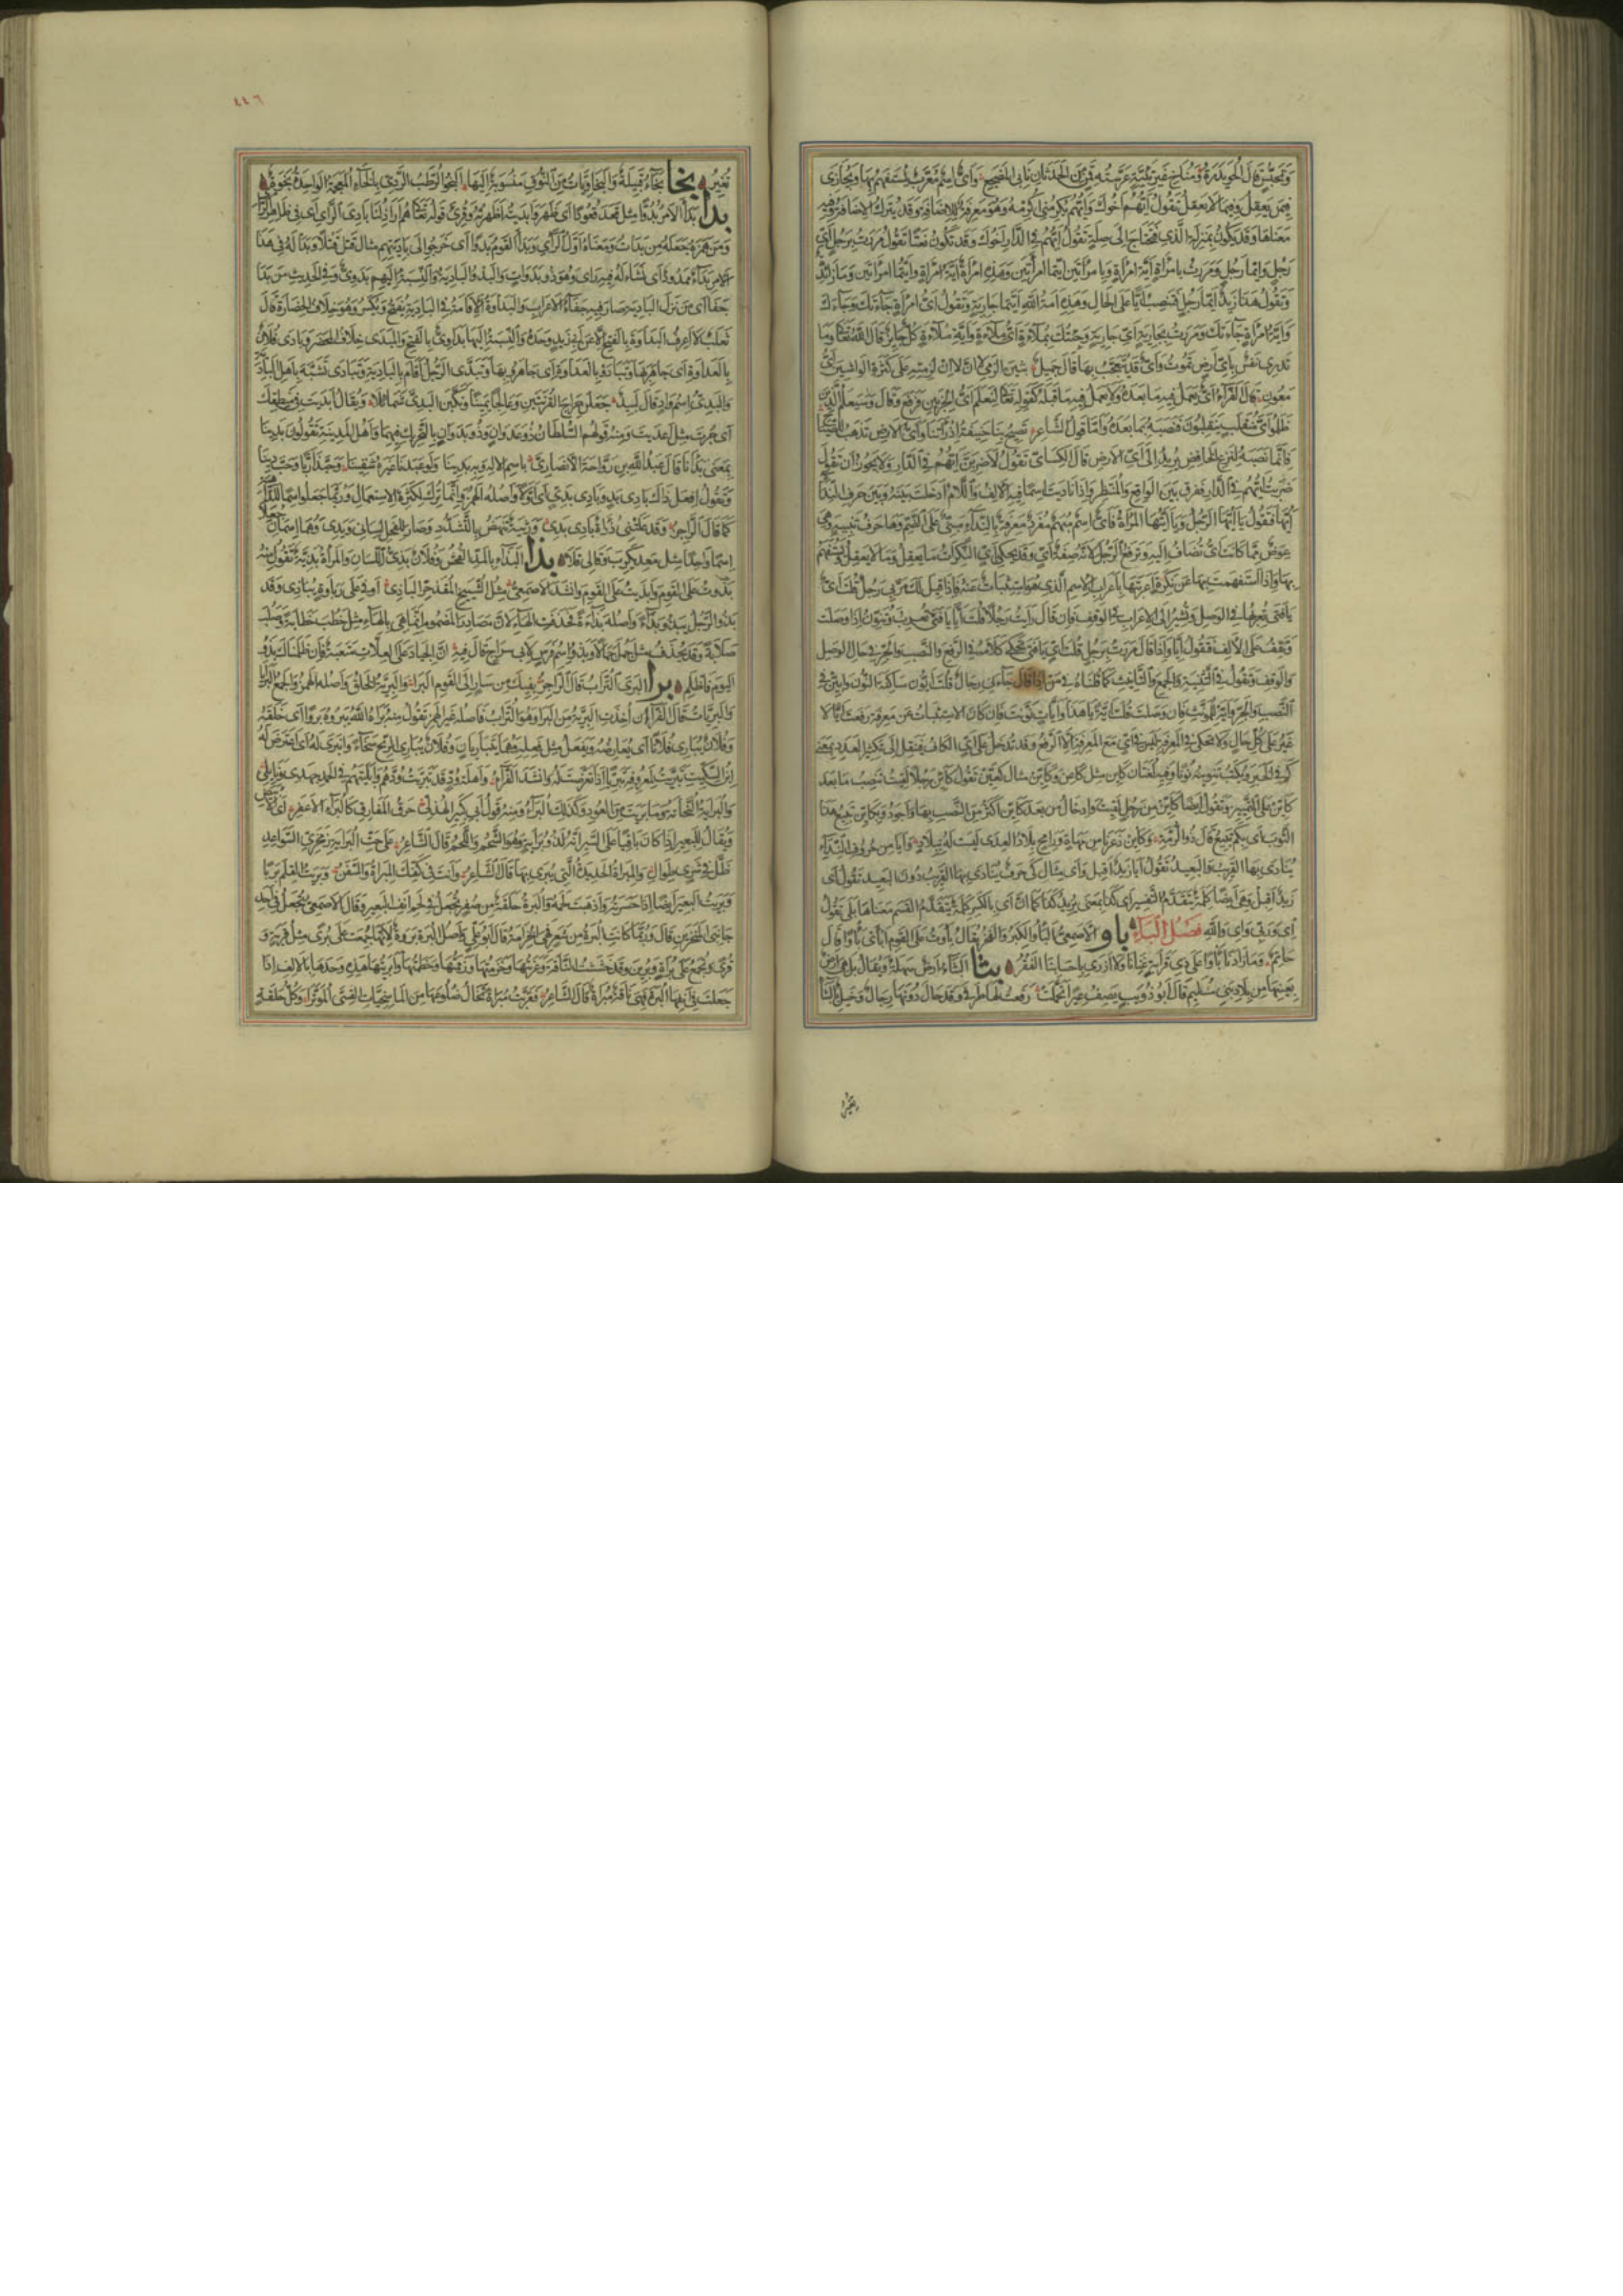 وتحبس قال الحويدرة ومناخ غير تئية عرسته قمن من الحدثان نابي المضجع وأي اسم معرب يستفهم بها ويجازى
فيمن يعقل وفيما لا يعقل تقول أيهم أخوك وأيهم يكرمني أكرمه وهو معرفة للإضافة وقد يترك الإضافة وفيه
معناها وقد يكون بمنزلة الذي فيحتاج إلى صلة تقول أيهم في الدار أخوك وقد تكون نعتا تقول مررت برجل أي
رجل وأيما رجل ومررت بامرأة أية امرأة وبامرأتين أيتما امرأتين وهذه امرأة أية امرأة وأيتما امرأتين وما زائدة
وتقول هذا زيد أيما رجل فتنصب أيا على الحال وهذه أمة الله أيتما جارية وتقول أي امرأة جاءتك وجاءك
وأية امرأة جاءتك ومررت بجارية أي جارية وجئتك بملاءة أي ملاءة وأية ملاءة كل جائز قال الله تعالى وما
تدري نفس بأي أرض تموت وأي قد يتعجب بها قال جميل بثين الزمي لا إن لا إن لزمته على كثرة الواشين أي
معون قال الفراء أي يعمل فيه ما بعده ولا يعمل فيه ما قبله كقوله تعالى لنعلم أي الحزبين فرفع وقال وسيعلم الذين
ظلموا أي منقلب ينقلبون فنصبه بما بعده وأما قول الشاعر تصيح بنا حنيفة إذ رأتنا وأي الأرض تذهب للصياح
فإنما نصبه لنزع الخافض يريد إلى أي الأرض قال الكسائي تقول لأضربن أيهم في الدار ولا يجوز أن تقول
ضربت أيهم في الدار ففرق بين الواقع والمنتظر وإذا ناديت اسما فيه الألف واللام أدخلت بينه وبين حرف النداء
أيها فتقول يا أيها الرجل ويا أيتها المرأة فأي اسم مبهم مفرد معرفة بالنداء مبني على الضم وها حرف تنبيه وهي
عوض مما كانت أي تضاف إليه وترفع الرجل لأنه صفة أي وقد يحكى بأي النكرات ما يعقل وما لا يعقل ويستفهم
بها وإذا استفهمت بها عن نكرة أعربتها بإعراب الاسم الذي هو استثبات عنه فإذا قيل لك مر بي رجل قلت أي
يا فتى تعربها في الوصل وتشير إلى الإعراب في الوقف فإن قال رأيت رجلا قلت أيا يا فتى تعرب وتنون إذا وصلت
وتقف على الألف فتقول أيا وإذا قال مررت برجل قلت أي يا فتى تحكي كلامه في الرفع والنصب والجر في حال الوصل
والوقف وتقول في التثنية والجمع والتأنيث كما قلناه في من إذا قال جاءني رجال قلت أيون ساكنة النون وأيين في
النصب والجر وأية للمؤنث فإن وصلت قلت أية يا هذا وأيات نونت فإن كان الاستثبات عن معرفة رفعت أيا لا
غير على كل حال ولا تحكي في المعرفة فليس في أي مع المعرفة إلا الرفع وقد تدخل على أي الكاف فتنقل إلى تكثير العدد بمعنى
كم في الخبر ويكتب تنوينه نونا وفيه لغتان كاين مثل كاعن وكأين مثال كعين تقول كأين رجلا لقيت تنصب ما بعد
كأين على التمييز وتقول أيضا كأين من رجل لقيت وإدخال من بعد كأين أكثر من النصب بها وأجود وبكأين تبيع هذا
الثوب أي بكم تبيع قال ذو الرمة وكاين ذعرنا من مهاة ورامح بلاد العدى ليست له ببلاد وأيا من حروف النداء
ينادى بها القريب والبعيد تقول أيا زيد أقبل وأي مثال كي حرف ينادى بها القريب دون البعيد تقول أي
زيد أقبل وهي أيضا كلمة تتقدم التفسير أي كذا بمعنى يريد كذا كما أن إي بالكسر كلمة تتقدم القسم معناها بلى تقول
إي وربي وإي والله فصل الباء بأو الأصمعي البأو الكبر والفخر يقال بأوت على القوم أبأى بأوا قال
حاتم وما زادنا بأوا على ذي قرابة غنانا ولا أزرى بأحسابنا الفقر بثا البثاء أرض سهلة ويقال بل هي أرض
بعينها من بلاد بني سليم قال أبو ذؤيب يصف عيرا تحملت رفعت لها طرفي وقد حال دونها رجال وخيل بالبثاء
تغير
٤٤٦
تغير بخا بخاء قبيلة والبخاويات من النوق منسوبة إليها البخو الرطب الردي بالخاء المعجمة الواحدة بخوة
بدا بدا الأمر بدوا مثل قعد قعودا أي ظهر وأبديته أظهرته وقرئ قوله تعالى هم أراذلنا بادي الرأي أي في ظاهر الرأي
ومن همزه جعله من بدأت ومعناه أول الرأي وبدا القوم بدوا أي خرجوا إلى باديتهم مثال قتل قتلا وبدا له في هذا
الأمر بداء ممدود أي نشأ له فيه رأي وهو ذو بدوات والبدو البادية والنسبة إليهم بدوي وفي الحديث من بدا
جفا أي من نزل البادية صار فيه جفاء الأعراب والبداوة الإقامة في البادية يفتح ويكسر وهو خلاف الحضارة قال
ثعلب لا أعرف البداوة بالفتح إلا عن أبي زيد وحده والنسبة إليها بداوي بالفتح والمبدى خلاف المحضر وبادى فلان
بالعداوة أي جاهر بها وتبادوا بالعداوة أي تجاهروا بها وتبدى الرجل أقام بالبادية وتبادى تشبه بأهل البادية
والبدي اسم واد قال لبيد جعلن جراج القرنتين وعالجا يمينا ونكبن البدي شمائلا ويقال أبديت في منطقك
أي جرت مثل أعديت ومنه قولهم السلطان ذو عدوان وذو بدوان بالتحريك فيهما وأهل المدينة تقولون بدينا
بمعنى بدأنا قال عبد الله بن رواحة الأنصاري باسم الإله وبه بدينا ولو عبدنا غيره شقينا وحبذا ربا وحب دينا
وتقول افعل ذاك بادي بد وبادي بدي أي أولا وأصله الهمز وإنما ترك لكثرة الاستعمال وربما جعلوا اسما للداهية
كما قال الراجز وقد علتني ذرأة بادي بدي ورثية تنهض بالتشدد وصار للفحل لساني ويدي وهما اسمان جعلا
اسما واحدا مثل معدي كرب وقالي قلا بذا البذاء بالمد الفحش وفلان بذي اللسان والمرأة بذية تقول منه
بذوت على القوم وأبذيت على القوم وأنشد الأصمعي مثل الشييخ المقذحر الباذي أوفى على رباوة يباذي وقد
بذو الرجل يبذو بذاء وأصله بذاءة فحذفت الهاء لأن مصادر المضموم إنما هي بالهاء مثل خطب خطابة وصلب
صلابة وقد تحذف مثل جمل جمالا وبذوا اسم فرس لأبي سراج قال فيه إن الجياد على العلات متعبة فإن ظلمناك بذو
اليوم فاظلم برا البرى التراب قال الراجز بفيك من سار إلى القوم البرا والبرية الخلق وأصله الهمز والجمع البرايا
والبريات قال الفراء إن أخذت البرية من البرا وهو التراب فأصله غير الهمز تقول منه براه الله يبروه بروا أي خلقه
وفلان يباري فلانا أي يعارضه ويفعل مثل فعله وهما يتباريان وفلان يباري الريح سخاء وانبرى له أي اعترض له
ابن السكيت تبريت لمعروفه تبريا إذا تعرضت له وأنشد الفراء وأهلة ود قد تبريت ودهم وأبليتهم في الحمد جهدي ونائلي
والبراية النحاتة وما بريت من العود وكذلك البراء ومنه قول أبي كبير الهذلي حرق المفارق كالبراء الأعفر أي الأبيض
ويقال للبعير إذا كان باقيا على السير إنه لذو براية وهو الشحم واللحم قال الشاعر على حت البراية زمخري السواعد
ظل في شري طوال والمبراة الحديدة التي يبرى بها قال الشاعر وأنت في كفك المبراة والسفن وبريت القلم بريا
وبريت البعير أيضا إذا حسرته وأذهبت لحمه والبرة حلقة من صفر تجعل في لحم أنف البعير وقال الأصمعي تجعل في أحد
جانبي المنخرين قال وربما كانت البرة من شعر فهي الخزامة قال أبو علي وأصل البرة بروة لأنها جمعت على برى مثل قرية و
قرى وتجمع على برات وبرين وقد خششت الناقة وعرنتها وخزمتها وزممتها وخطمتها وأبريتها هذه وحدها بالألف إذا
جعلت في أنفها البرة فهي ناقة مبراة قال الشاعر فقربت مبراة تخال ضلوعها من الماسخيات القسي الموترا وكل حلقة